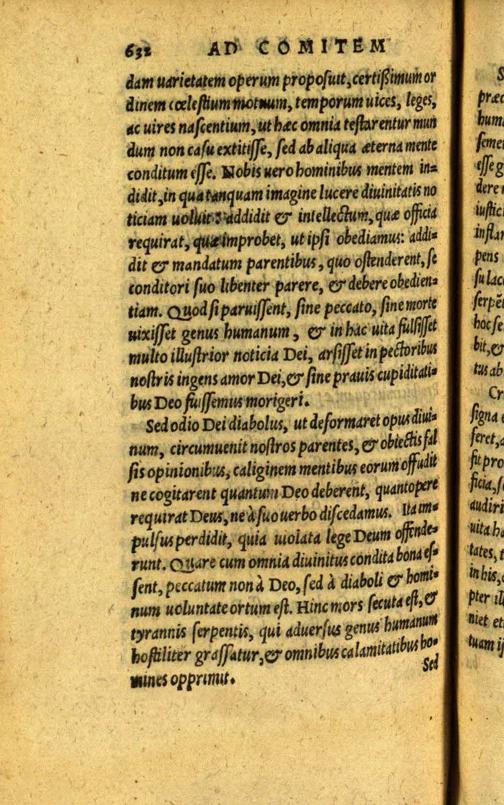 632 AD COMITEM
dam uarietatem operum proposuit, certißimum or
dinem cœlestium motuum, temporum uices, leges,
ac uires nascentium, ut hæc omnia testarentur mun
dum non casu extitisse, sed ab aliqua æterna mente
conditum esse. Nobis uero hominibus mentem in=
didit, in qua tanquam imagine lucere diuinitatis no
ticiam uoluit: addidit & intellectum, quæ officia
requirat, quæ improbet, ut ipsi obediamus: addi=
dit & mandatum parentibus, quo ostenderent, se
conditori suo libenter parere, & debere obedien=
tiam. Quod si paruissent, sine peccato, sine morte
uixisset genus humanum, & in hac uita fulsisset
multo illustrior noticia Dei, arsisset in pectoribus
nostris ingens amor Dei, & sine prauis cupiditati=
bus Deo fuissemus morigeri.
Sed odio Dei diabolus, ut deformaret opus diui=
num, circumuenit nostros parentes, & obiectis fal
sis opinionibus, caliginem mentibus eorum offudit
ne cogitarent quantum Deo deberent, quantopere
requirat Deus, ne à suo uerbo discedamus. Ita im=
pulsus perdidit, quia uiolata lege Deum offende=
runt. Quare cum omnia diuinitus condita bona es=
sent, peccatum non à Deo, sed à diaboli & homi=
num uoluntate ortum est. Hinc mors secuta est, &
tyrannis serpentis, qui aduersus genus humanum
hostiliter grassatur, & omnibus calamitatibus ho=
mines opprimit.
Sed